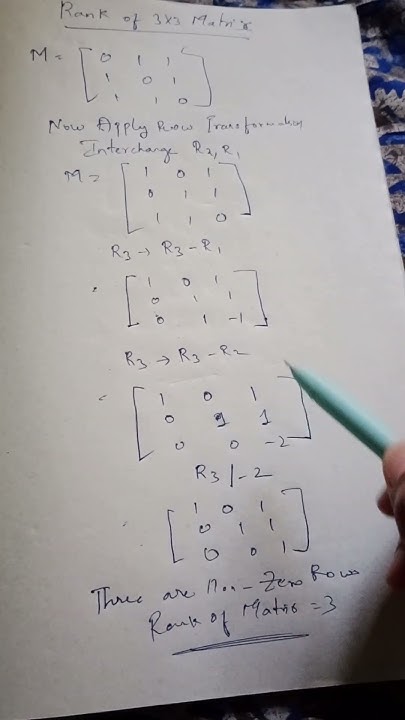 Rank of 3x3 Matrix
M = [ 0 1 1
1 0 1
1 1 0 ]
Now Apply Row Transformation
Interchange R2, R1
M = [ 1 0 1
0 1 1
1 1 0 ]
R3 → R3 - R1
[ 1 0 1
0 1 1
0 1 -1 ]
R3 → R3 - R2
= [ 1 0 1
0 1 1
0 0 -2 ]
R3 / -2
[ 1 0 1
0 1 1
0 0 1 ]
Three are Non-Zero Rows
Rank of Matrix = 3